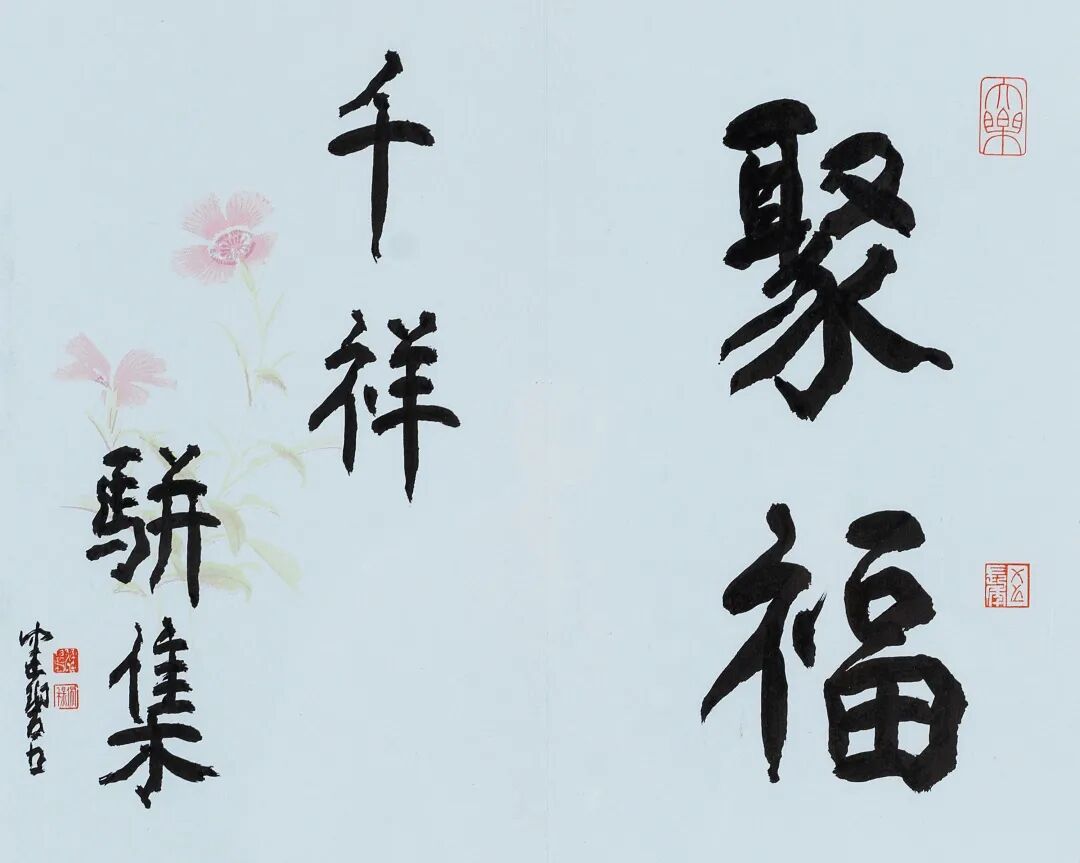 聚福
千祥
駢集